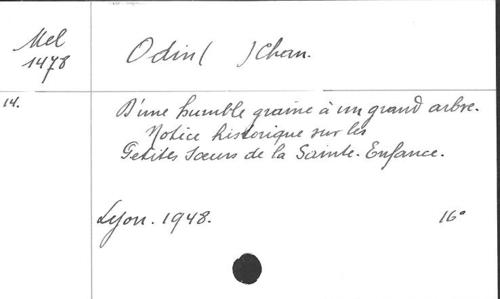 Mel
1478
Odin( )Chan.
14.
D'une humble graine à un grand arbre.
Notice historique sur les
Petites Sœurs de la Sainte-Enfance.
Lyon. 1948.
16°